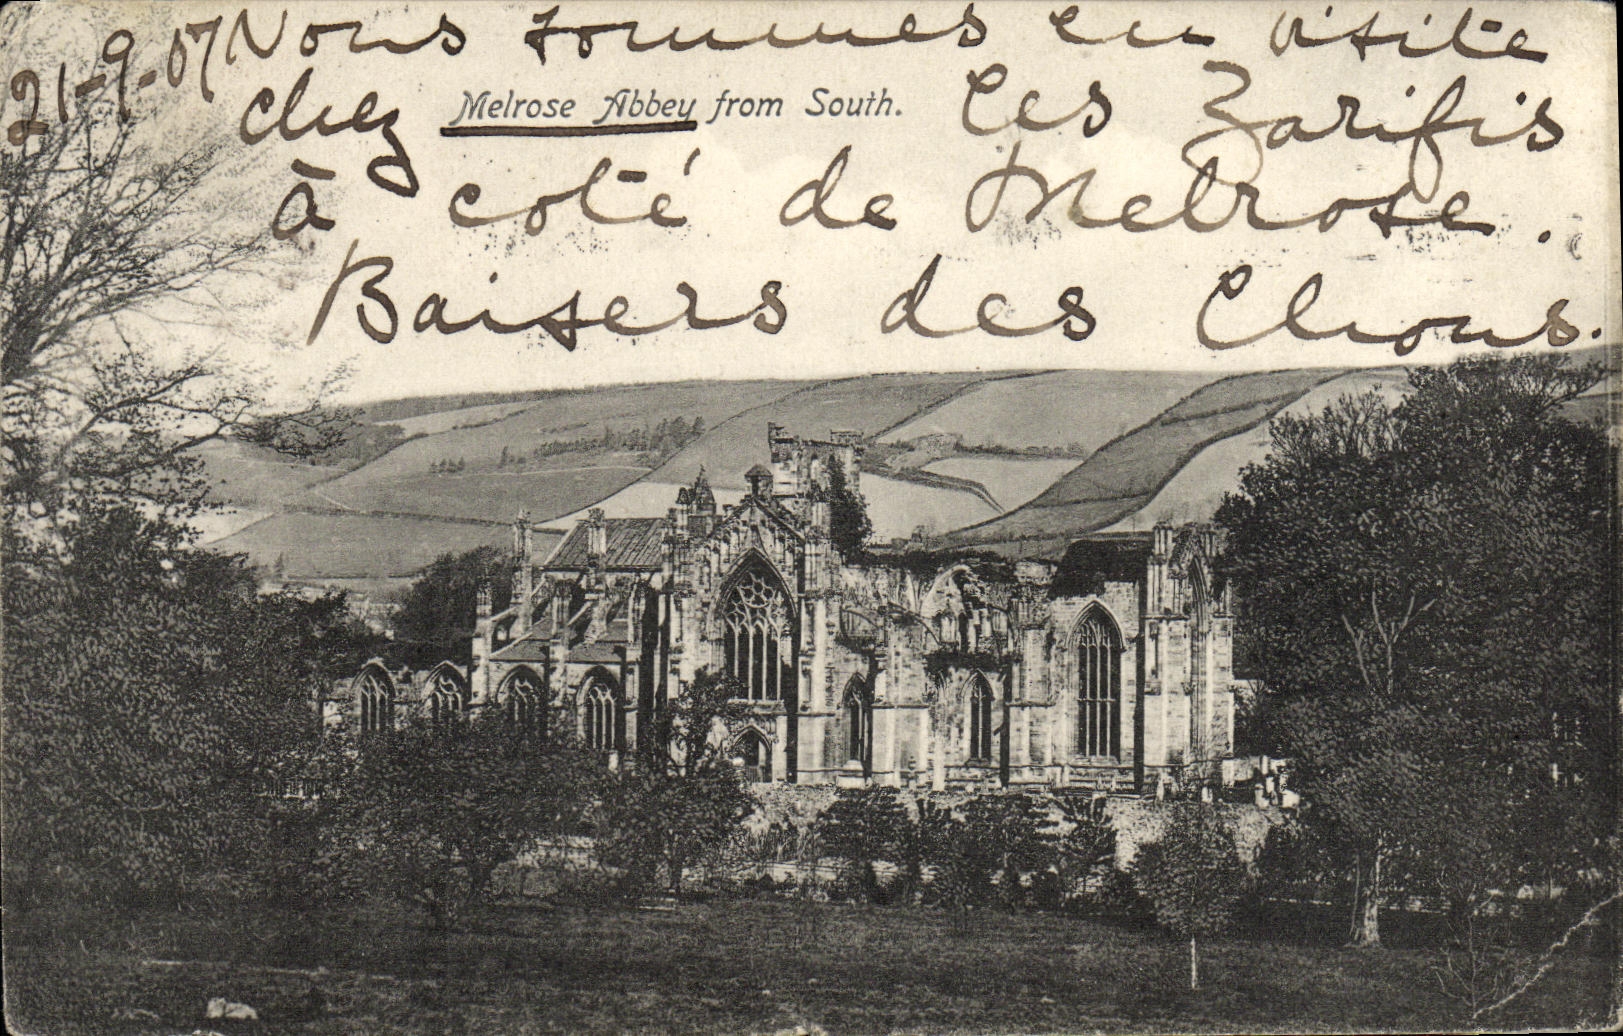 21-9-07 Nous sommes en visite
chez Melrose Abbey from South. les Zarifis
à coté de Melrose.
Baisers des Chous.